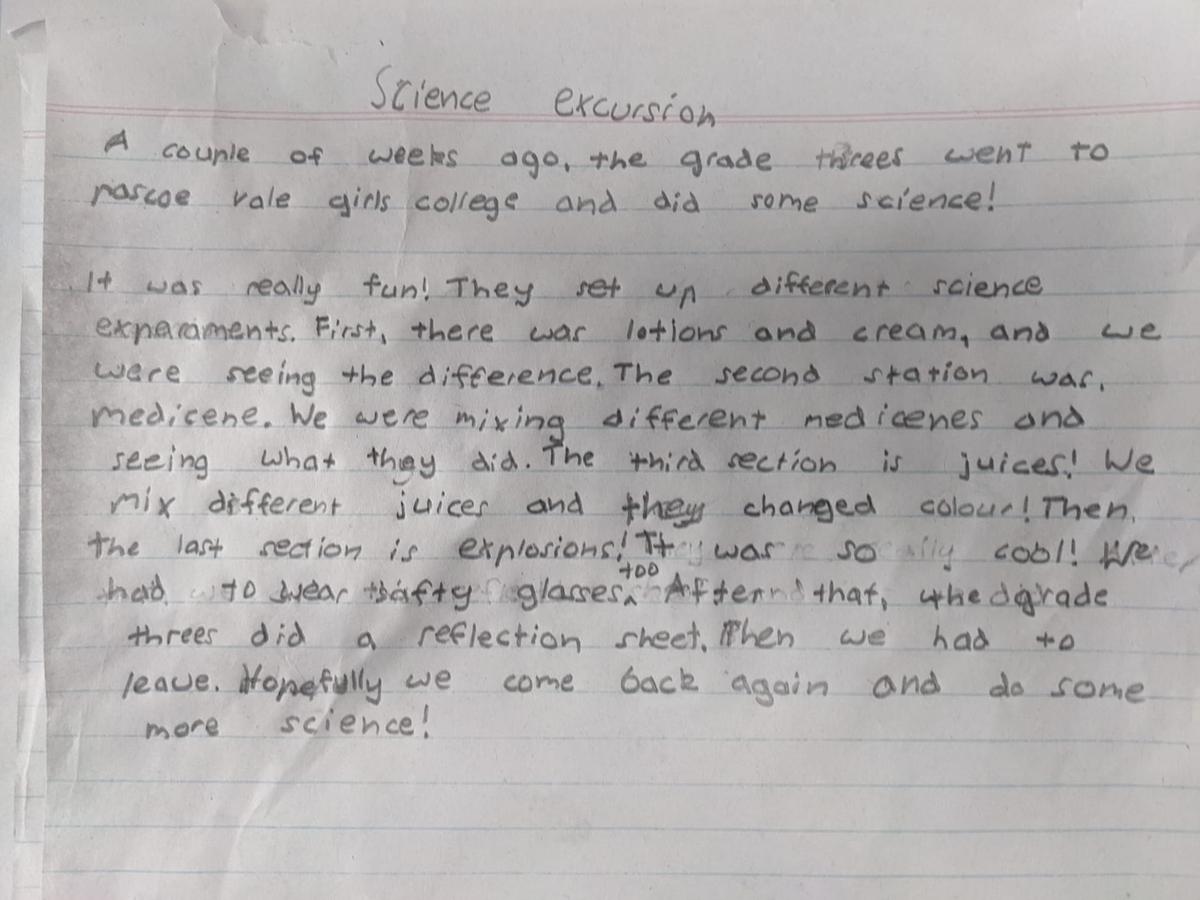 Science excursion
A couple of weeks ago, the grade threes went to
pascoe vale girls college and did some science!
It was really fun! They set up different science
experaments. First, there was lotions and cream, and we
were seeing the difference. The second station was,
medicene. We were mixing different medicenes and
seeing what they did. The third section is juices! We
mix different juices and they changed colour! Then,
the last section is explosions! It was so cool! We
had to wear safty glasses too. After that, the grade
threes did a reflection sheet. Then we had to
leave. Hopefully we come back again and do some
more science!